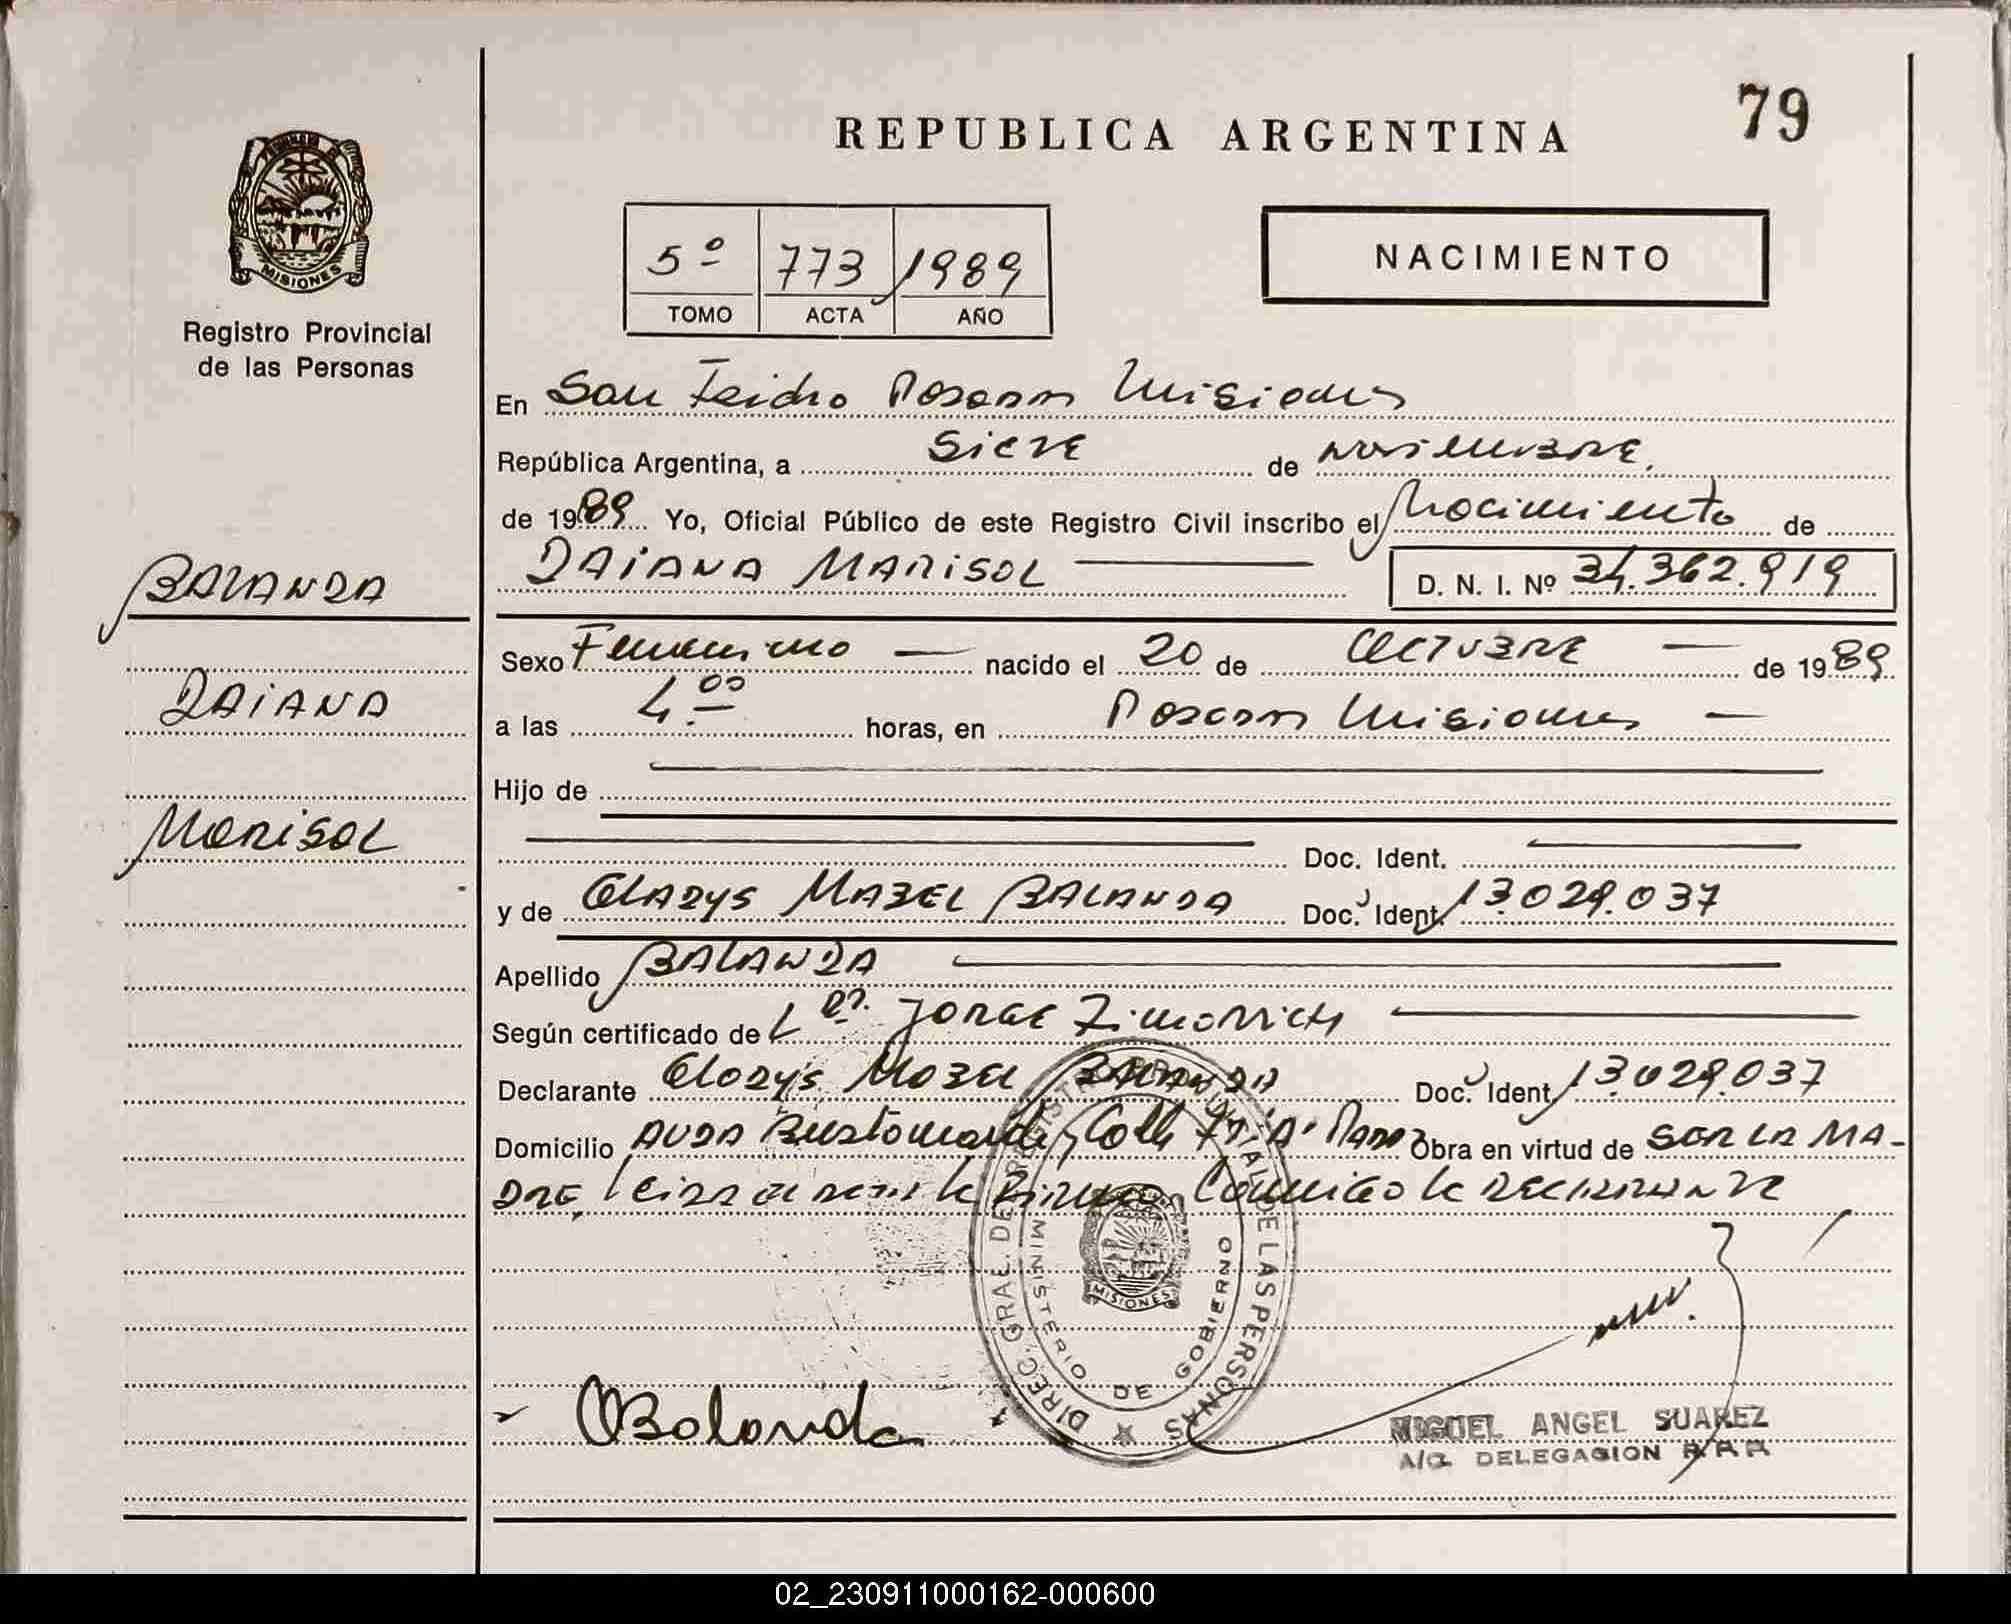 79
REPUBLICA ARGENTINA
MISIONES
Registro Provincial
de las Personas
5º 773 1989
TOMO ACTA AÑO
NACIMIENTO
En San Isidro Posadas Misiones
República Argentina, a siete de noviembre
de 1989 Yo, Oficial Público de este Registro Civil inscribo el Nacimiento de
DAIANA MARISOL D. N. I. Nº 34.362.919
BALANDA
Sexo Femenino nacido el 20 de OCTUBRE de 1989
DAIANA
a las 4.00 horas, en Posadas Misiones
Hijo de
MARISOL
Doc. Ident.
y de GLADYS MABEL BALANDA Doc. Ident. 13.029.037
Apellido BALANDA
Según certificado de Jorge
Declarante Gladys Mabel BALANDA Doc. Ident. 13.029.037
Domicilio AVDA Bustamante y Obra en virtud de SER LA MA-
DRE, Leida el acta la Firma Conmigo la declarante
DIREC. GRAL. DEL REGISTRO PROVINCIAL DE LAS PERSONAS
MINISTERIO DE GOBIERNO
MISIONES
Balanda
MIGUEL ANGEL SUAREZ
A/C. DELEGACION
02_230911000162-000600